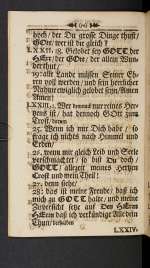 hoch/ der Du grosse Dinge thust/
GOtt/ wer ist dir gleich?
LXXII. 18. Gelobet sey GOTT der
HErr/ der GOtt/ der allein Wun-
der thut/
19: alle Lande müssen Seiner Eh-
ren voll werden/ und sein herrlicher
Nahme ewiglich gelobet seyn/ Amen
Amen!
LXXIII. 1. Wer reines Her-
zens ist/ hat dennoch GOtt zum
Trost/
25. Wenn ich nur Dich habe/ so
frage ich nichts nach Himmel und
Erden/
26. wenn mir gleich Leib und Seele
verschmachtet/ so bist Du doch/
GOTT/ allezeit meines Hertzens
Trost und mein Theil:
27. denn siehe/
28. das ist meine Freude/ daß ich
mich zu GOTT halte/ und meine
Zuversicht setze auf Den HErrn
HErrn daß ich verkündige Alle dein
Thun/
LXXIV.